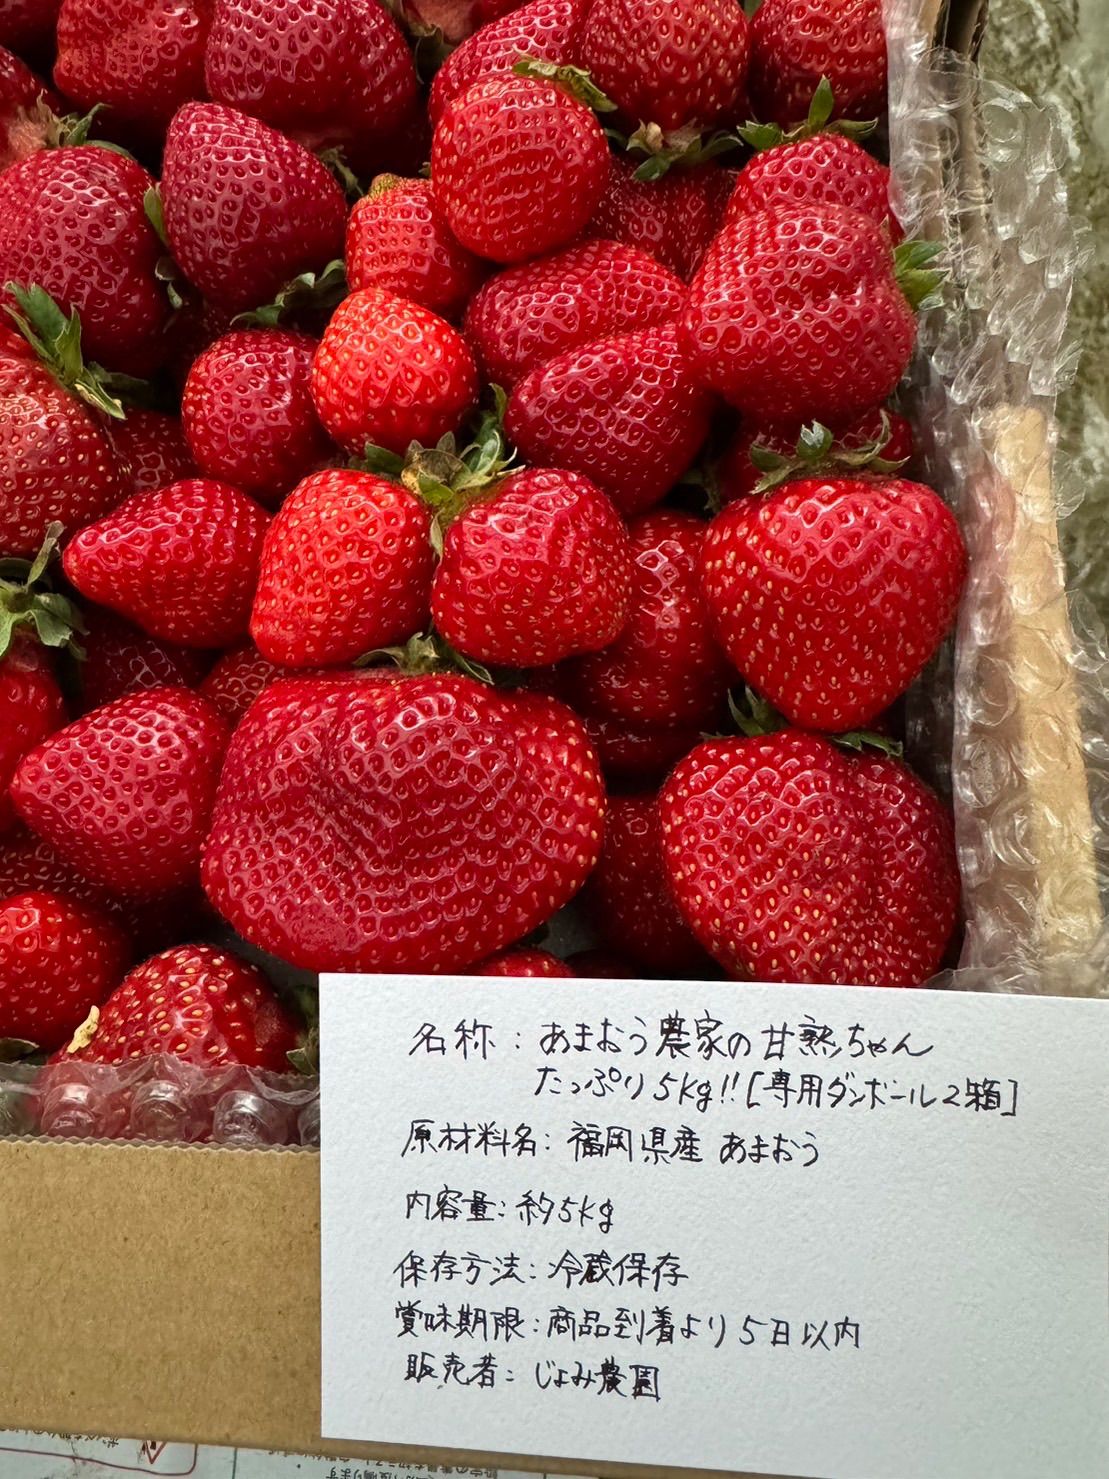 名称：あまおう農家の甘熟ちゃん
たっぷり5kg!![専用ダンボール2箱]
原材料名：福岡県産 あまおう
内容量：約5kg
保存方法：冷蔵保存
賞味期限：商品到着より5日以内
販売者：じょみ農園